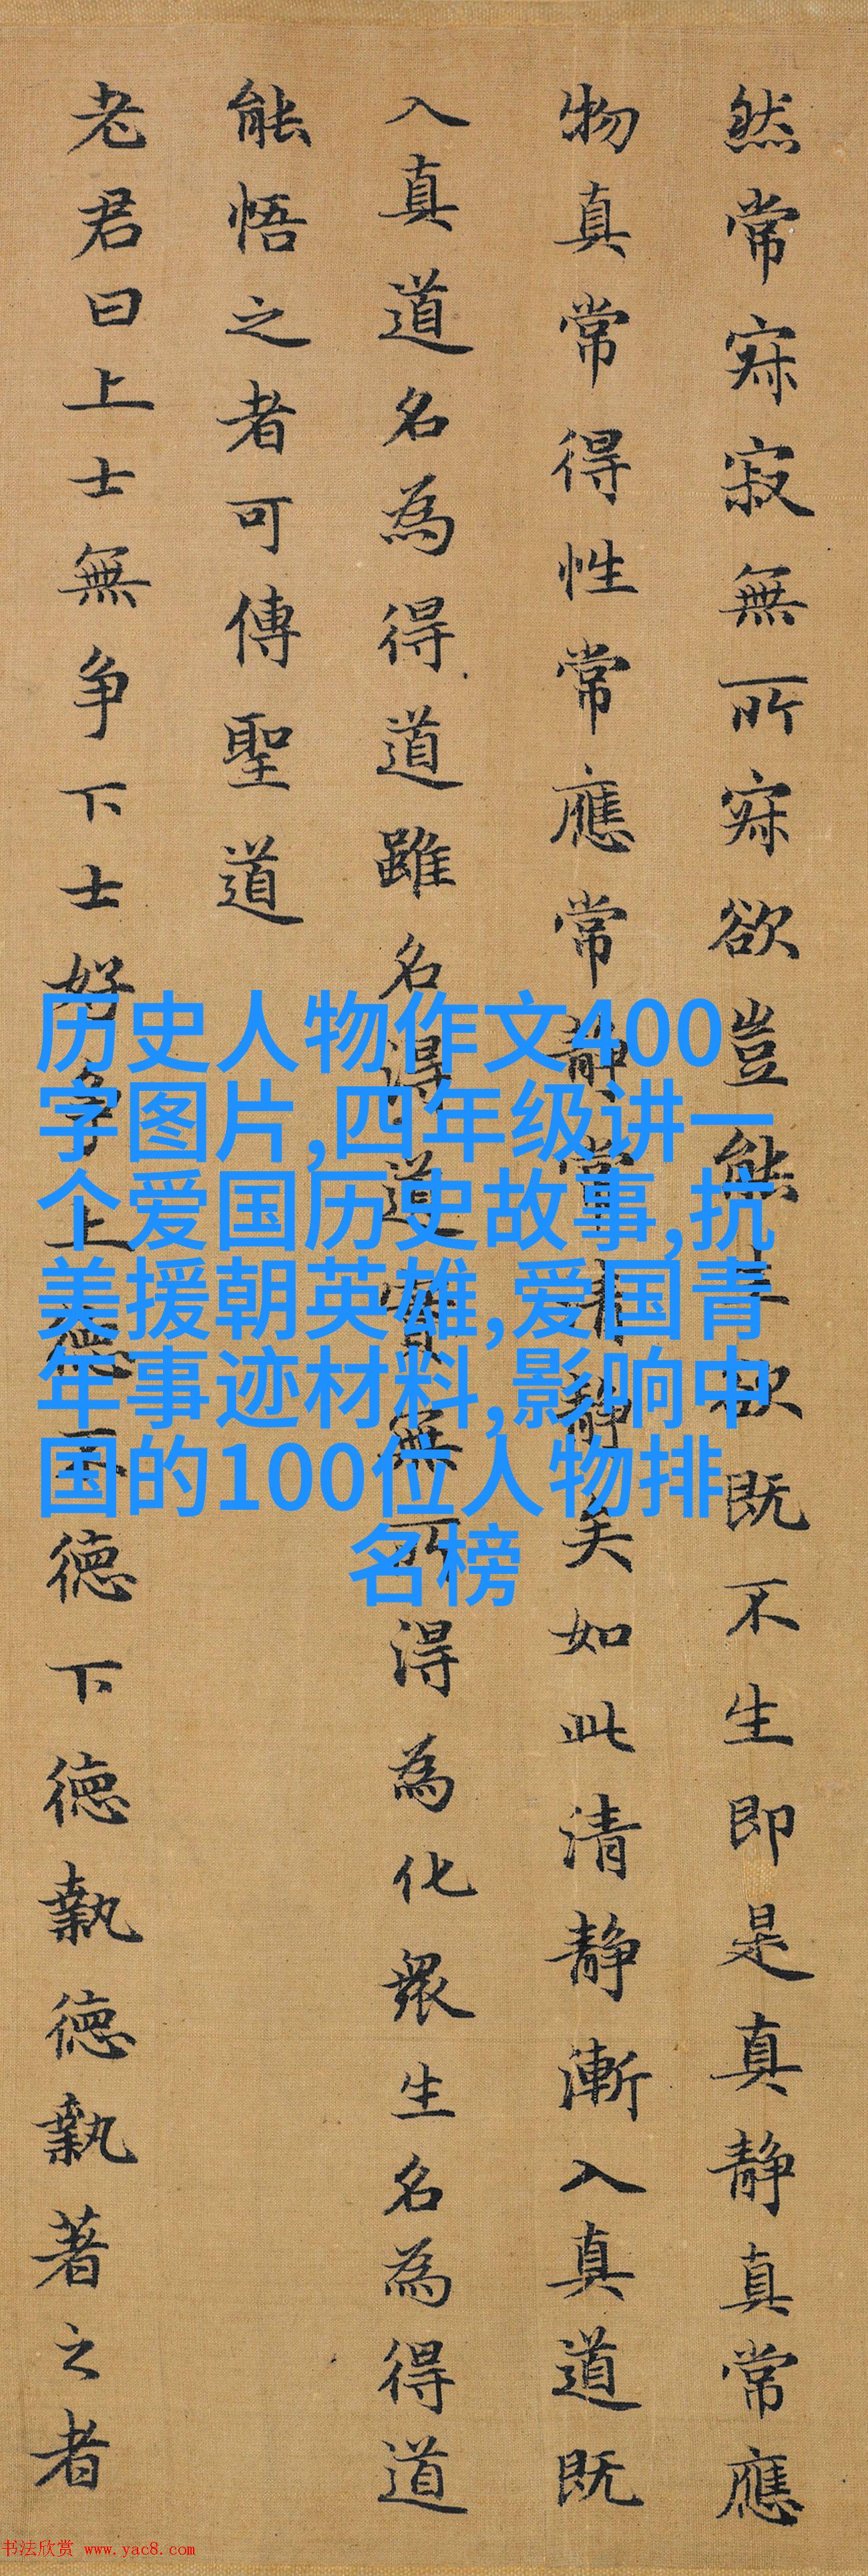 然常寂寂無所寂欲豈能生欲既不生即是真静真常應
物真常得性常應常静常清静矣如此清静漸入真道既
入真道名為得道雖名得道實無所得為化衆生名為得道
能悟之者可傳聖道
老君曰上士無争下士好争上德不德下德執德執著之者
历史人物作文400
字图片,四年级讲一
个爱国历史故事,抗
美援朝英雄,爱国青
年事迹材料,影响中
国的100位人物排
名榜
书法欣赏 www.yac8.com